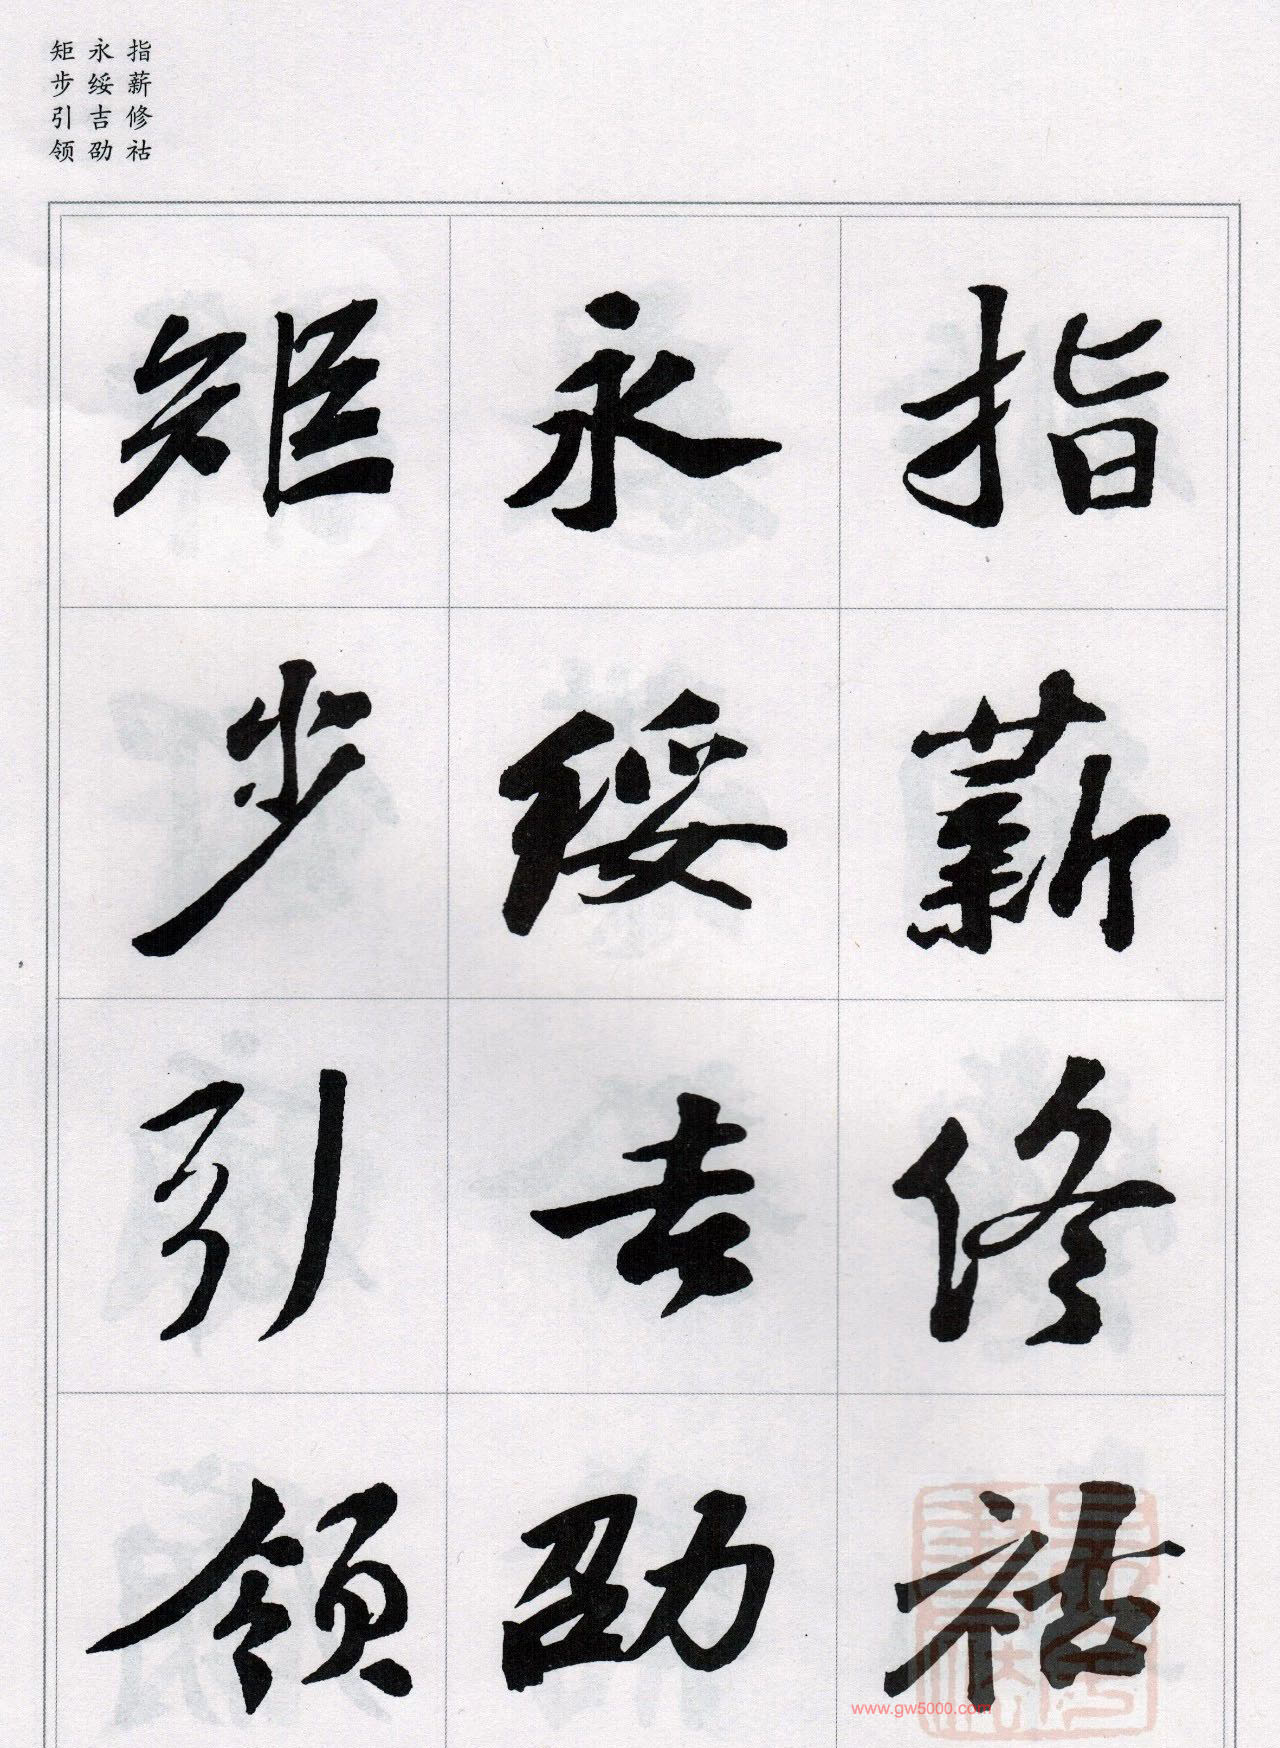 指薪修祜
永绥吉劭
矩步引领
指薪修祜
永绥吉劭
矩步引领
www.gw5000.com